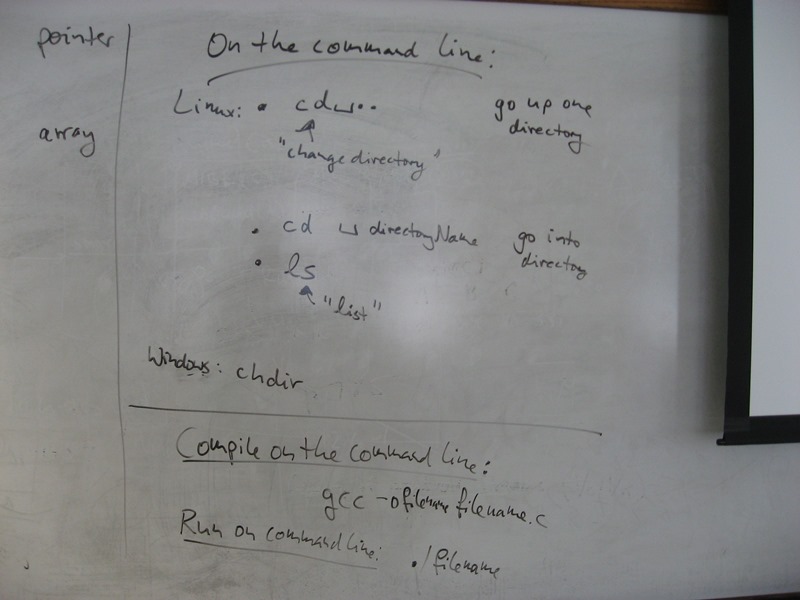 pointer
array
On the command line:
Linux: • cd␣.. go up one
directory
"change directory"
• cd ␣ directoryName go into
directory
• ls
"list"
Windows: chdir
Compile on the command line:
gcc -o filename filename.c
Run on command line: ./filename